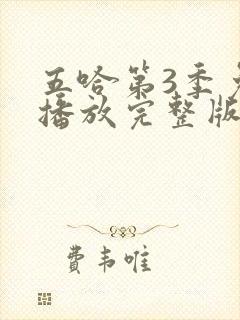 五哈第3季免
播放完整版
费韦唯